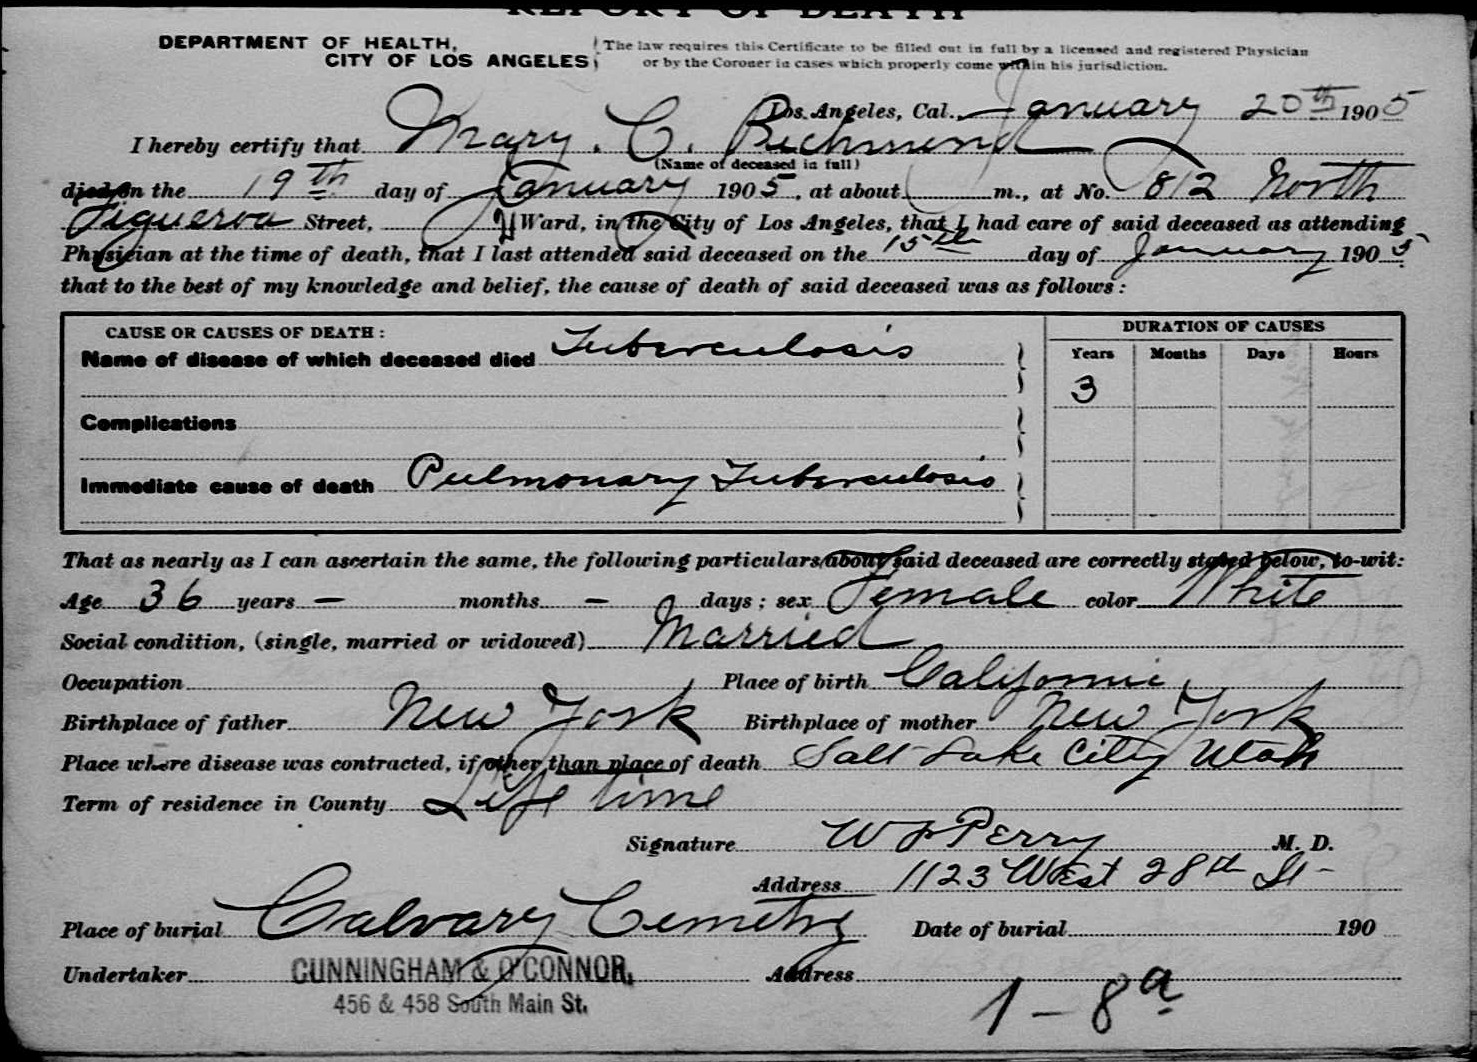 REPORT OF DEATH
DEPARTMENT OF HEALTH,
CITY OF LOS ANGELES
The law requires this Certificate to be filled out in full by a licensed and registered Physician
or by the Coroner in cases which properly come within his jurisdiction.
Los Angeles, Cal., January 20th 1905
I hereby certify that Mary. C. Richmond
(Name of deceased in full)
died on the 19th day of January 1905, at about m., at No. 812 North
Figueroa Street, Ward, in the City of Los Angeles, that I had care of said deceased as attending
Physician at the time of death, that I last attended said deceased on the 15th day of January 1905
that to the best of my knowledge and belief, the cause of death of said deceased was as follows:
CAUSE OR CAUSES OF DEATH: DURATION OF CAUSES
Name of disease of which deceased died Tuberculosis Years Months Days Hours
3
Complications
Immediate cause of death Pulmonary Tuberculosis
That as nearly as I can ascertain the same, the following particulars about said deceased are correctly stated below, to-wit:
Age 36 years — months — days; sex Female color White
Social condition, (single, married or widowed) Married
Occupation Place of birth California
Birthplace of father New York Birthplace of mother New York
Place where disease was contracted, if other than place of death Salt Lake City Utah
Term of residence in County Life time
Signature Perry M. D.
Address 1123 West 28th St-
Place of burial Calvary Cemetry Date of burial 190
Undertaker CUNNINGHAM & O'CONNOR, Address
456 & 458 South Main St.
1-8a